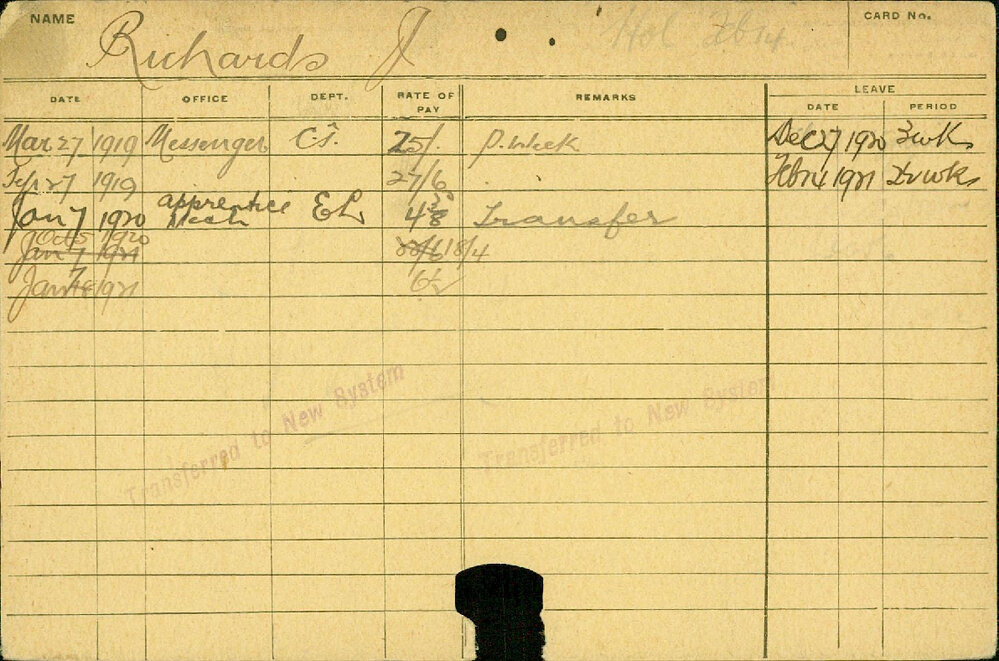 NAME Richards J Hol Feb 14 CARD No.
DATE OFFICE DEPT. RATE OF PAY REMARKS LEAVE
DATE PERIOD
Mar 27 1919 Messenger C.S. 25/. P. Week Dec 27 1920 3 wk
27 1919 27/6 Feb 14 1921 2 wks
Jan 7 1920 apprentice Mech E L 48 Transfer
Oct 5 1920
Jan 7 1921 18/4
Jan 1921
Transferred to New System
Transferred to New System